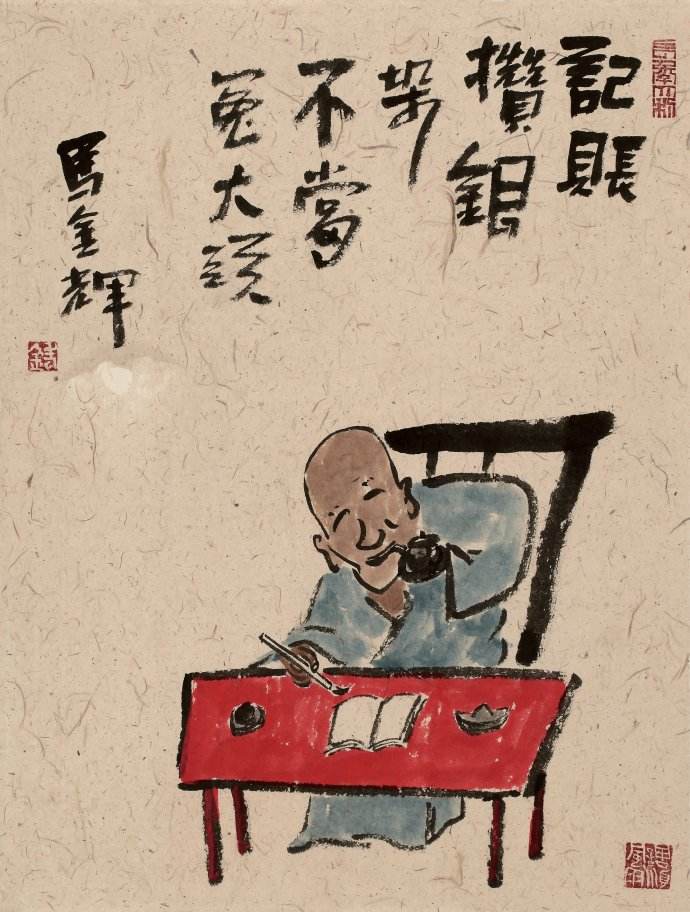 記賬
攢銀
幣
不當
冤大頭
馬金輝